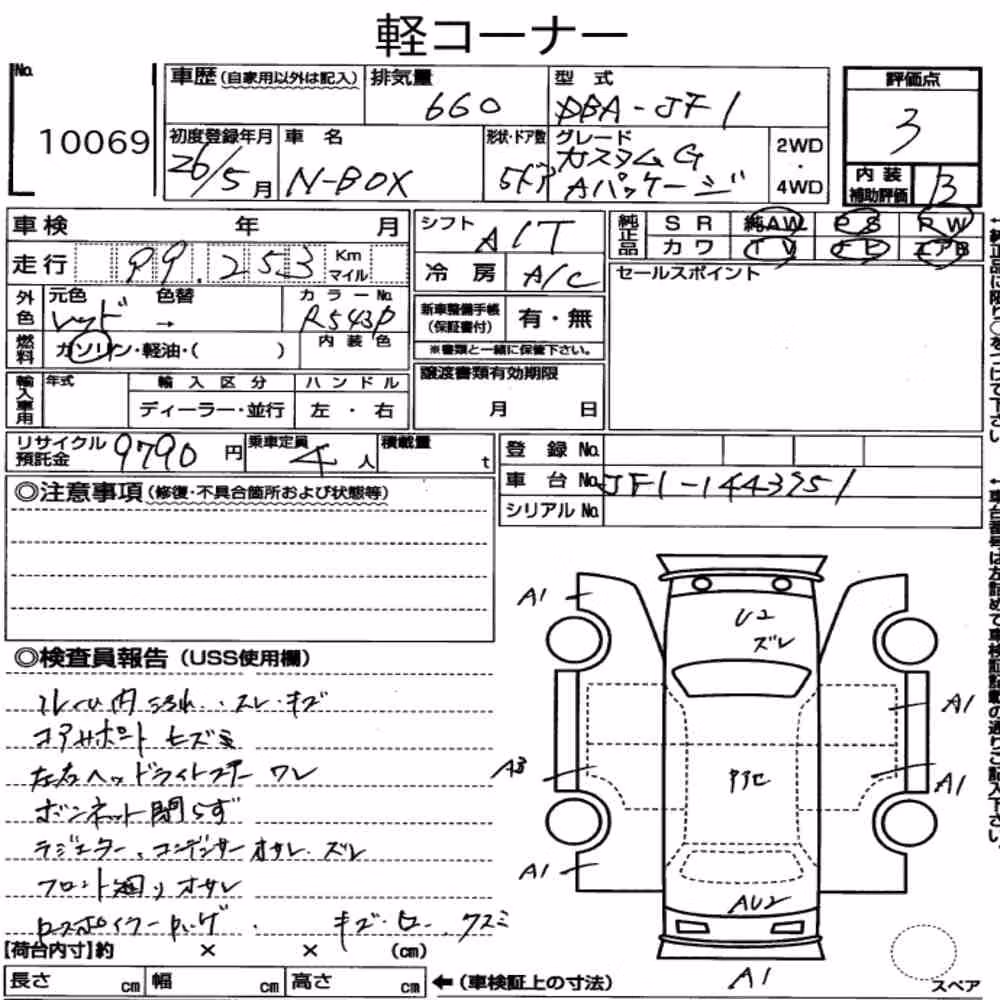 軽コーナー
No. 10069
車歴(自家用以外は記入) 排気量 660 型式 DBA-JF1
初度登録年月 26/5月 車名 N-BOX 形状・ドア数 5ドア グレード カスタムG Aパッケージ 2WD・4WD
評価点 3
内装補助評価 B
車検 年 月
走行 99,253 Km マイル
外色 元色 レッド 色替 → カラーNo. R543P
燃料 ガソリン・軽油・( ) 内装色
輸入車用 年式 輸入区分 ディーラー・並行 ハンドル 左・右
シフト AIT
冷房 A/C
新車整備手帳(保証書付) 有・無
※書類と一緒に保管下さい。
譲渡書類有効期限
月 日
純正品 SR 純AW PS PW
カワ TV ナビ エアB
セールスポイント
リサイクル預託金 9790円 乗車定員 4人 積載量 t
登録No.
車台No. JF1-1443951
シリアルNo.
◎注意事項(修復・不具合箇所および状態等)
◎検査員報告(USS使用欄)
コアサポート ヒズミ
左右ヘッドライトステー ワレ
ボンネット開らず
ラジエター、コンデンサー オサレ ズレ
フロント廻り オサレ
キズ
A1
U2
ズレ
A1
A3
A1
A1
AU2
A1
[荷台内寸]約 × × (cm)
長さ cm 幅 cm 高さ cm ←(車検証上の寸法)
スペア
←純正品に限り○をつけて下さい。
←車台番号は左詰めで車検証記載の通りご記入下さい。